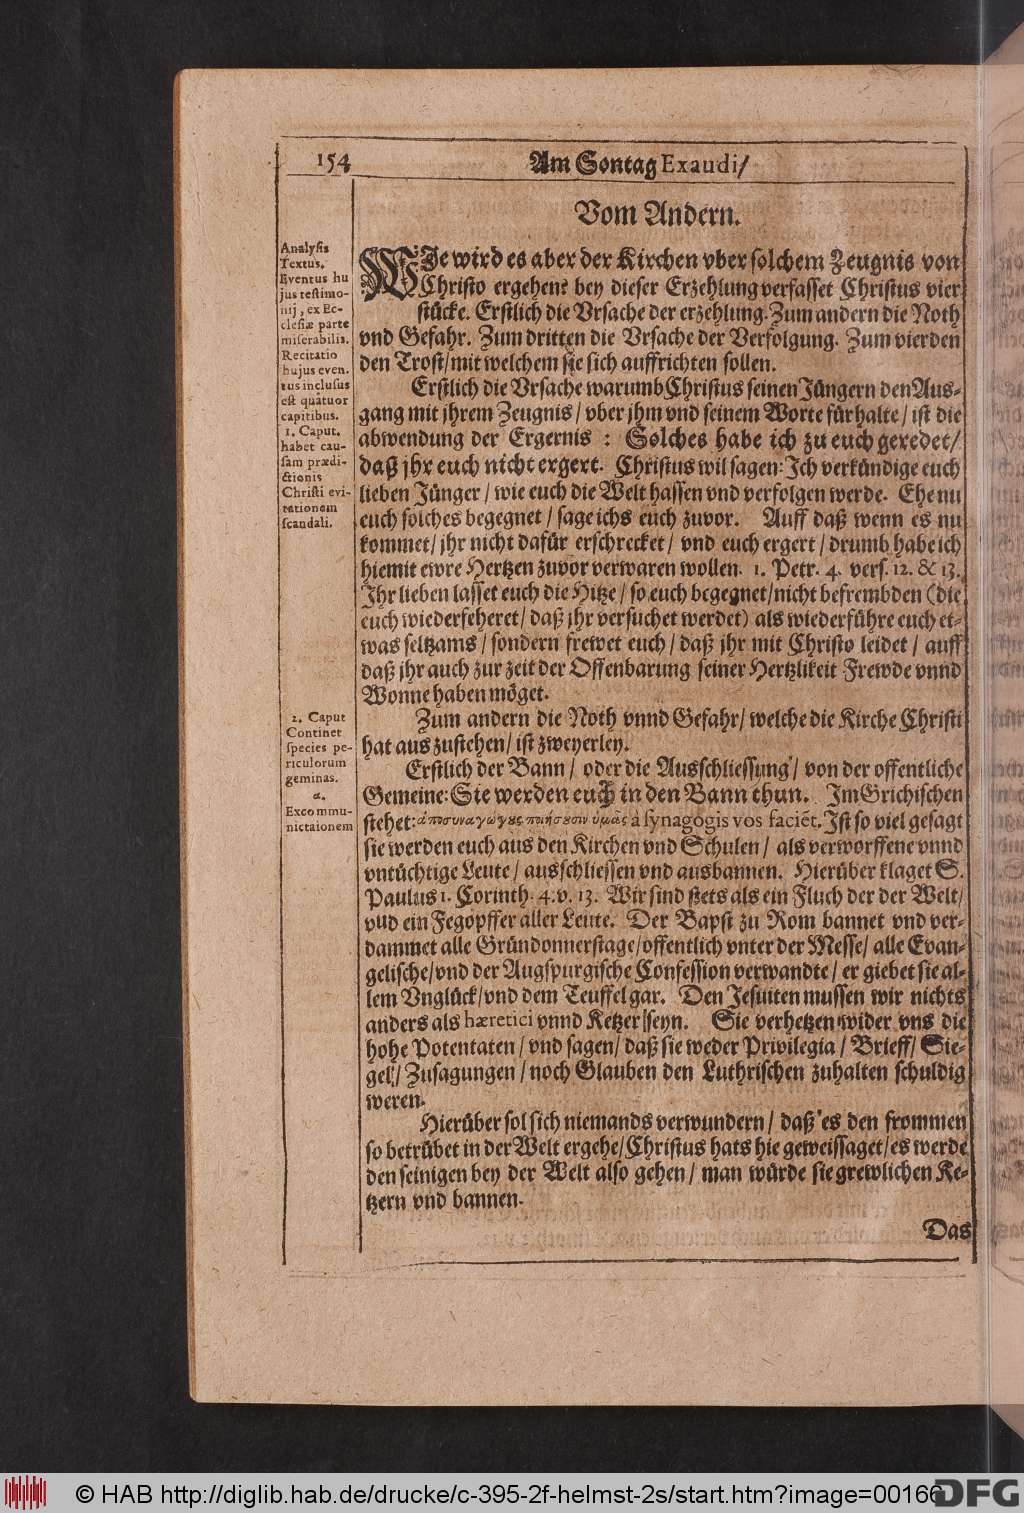 154
Am Sontag Exaudi/
Vom Andern.
Analysis
Textus.
Eventus hu
jus testimo-
nij, ex Ec-
clesiæ parte
miserabilis.
Recitatio
hujus even.
tus inclusus
est quatuor
capitibus.
1. Caput.
habet cau-
sam prædi-
ctionis
Christi evi-
tationem
scandali.
WIe wird es aber der Kirchen vber solchem Zeugnis von
Christo ergehen? bey dieser Erzehlung verfasset Christus vier
stücke. Erstlich die Vrsache der erzehlung. Zum andern die Noth
vnd Gefahr. Zum dritten die Vrsache der Verfolgung. Zum vierden
den Trost/ mit welchem sie sich auffrichten sollen.
Erstlich die Vrsache warumb Christus seinen Jüngern den Aus-
gang mit jhrem Zeugnis/ vber jhm vnd seinem Worte fürhalte/ ist die
abwendung der Ergernis : Solches habe ich zu euch geredet/
daß jhr euch nicht ergert. Christus wil sagen: Ich verkündige euch
lieben Jünger/ wie euch die Welt hassen vnd verfolgen werde. Ehe nu
euch solches begegnet/ sage ichs euch zuvor. Auff daß wenn es nu
kommet/ jhr nicht dafür erschrecket/ vnd euch ergert/ drumb habe ich
hiemit ewre Hertzen zuvor verwaren wollen. 1. Petr. 4. vers. 12. & 13.
Ihr lieben lasset euch die Hitze/ so euch begegnet/ nicht befrembden (die
euch wiederfeheret/ daß jhr versuchet werdet) als wiederführe euch et-
was seltzams/ sondern frewet euch/ daß jhr mit Christo leidet/ auff
daß jhr auch zur zeit der Offenbarung seiner Hertzlikeit Frewde vnnd
Wonne haben möget.
2. Caput
Continet
species pe-
riculorum
geminas.
a.
Excommu-
nictaionem
Zum andern die Noth vnnd Gefahr/ welche die Kirche Christi
hat aus zustehen/ ist zweyerley.
Erstlich der Bann/ oder die Ausschliessung/ von der offentliche
Gemeine: Sie werden euch in den Bann thun. Im Grichischen
stehet: ἀποσυναγώγους ποιήσουσιν ὑμᾶς à synagogis vos faciēt. Ist so viel gesagt
sie werden euch aus den Kirchen vnd Schulen/ als verworffene vnnd
vntüchtige Leute/ ausschliessen vnd ausbannen. Hierüber klaget S.
Paulus 1. Corinth. 4. v. 13. Wir sind stets als ein Fluch der der Welt/
vud ein Fegopffer aller Leute. Der Bapst zu Rom bannet vnd ver-
dammet alle Gründonnerstage/ offentlich vnter der Messe/ alle Evan-
gelische/ vnd der Augspurgische Confession verwandte/ er giebet sie al-
lem Vnglück/ vnd dem Teuffel gar. Den Jesuiten mussen wir nichts
anders als hæretici vnnd Ketzer seyn. Sie verhetzen wider vns die
hohe Potentaten/ vnd sagen/ daß sie weder Privilegia/ Brieff/ Sie-
gel/ Zusagungen/ noch Glauben den Luthrischen zuhalten schuldig
weren.
Hierüber sol sich niemands verwundern/ daß es den frommen
so betrübet in der Welt ergehe/ Christus hats hie geweissaget/ es werde
den seinigen bey der Welt also gehen/ man würde sie grewlichen Ke-
tzern vnd bannen.
Das
© HAB http://diglib.hab.de/drucke/c-395-2f-helmst-2s/start.htm?image=00166
DFG